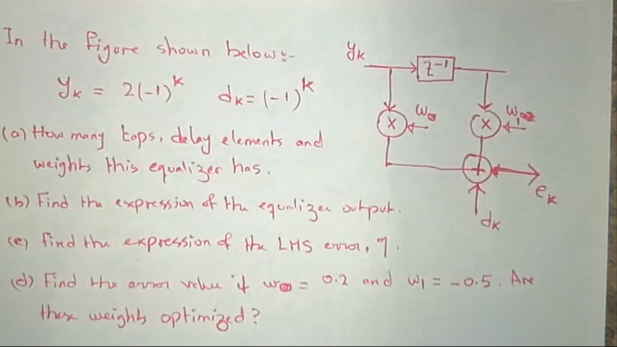 In the figure shown below:-
yk = 2(-1)^k dk = (-1)^k
(a) How many taps, delay elements and
weights this equalizer has.
(b) Find the expression of the equalizer output.
(c) Find the expression of the LMS error, η.
(d) Find the error value if w0 = 0.2 and w1 = -0.5. Are
these weights optimized?
yk
z^-1
x
x
+
ek
dk